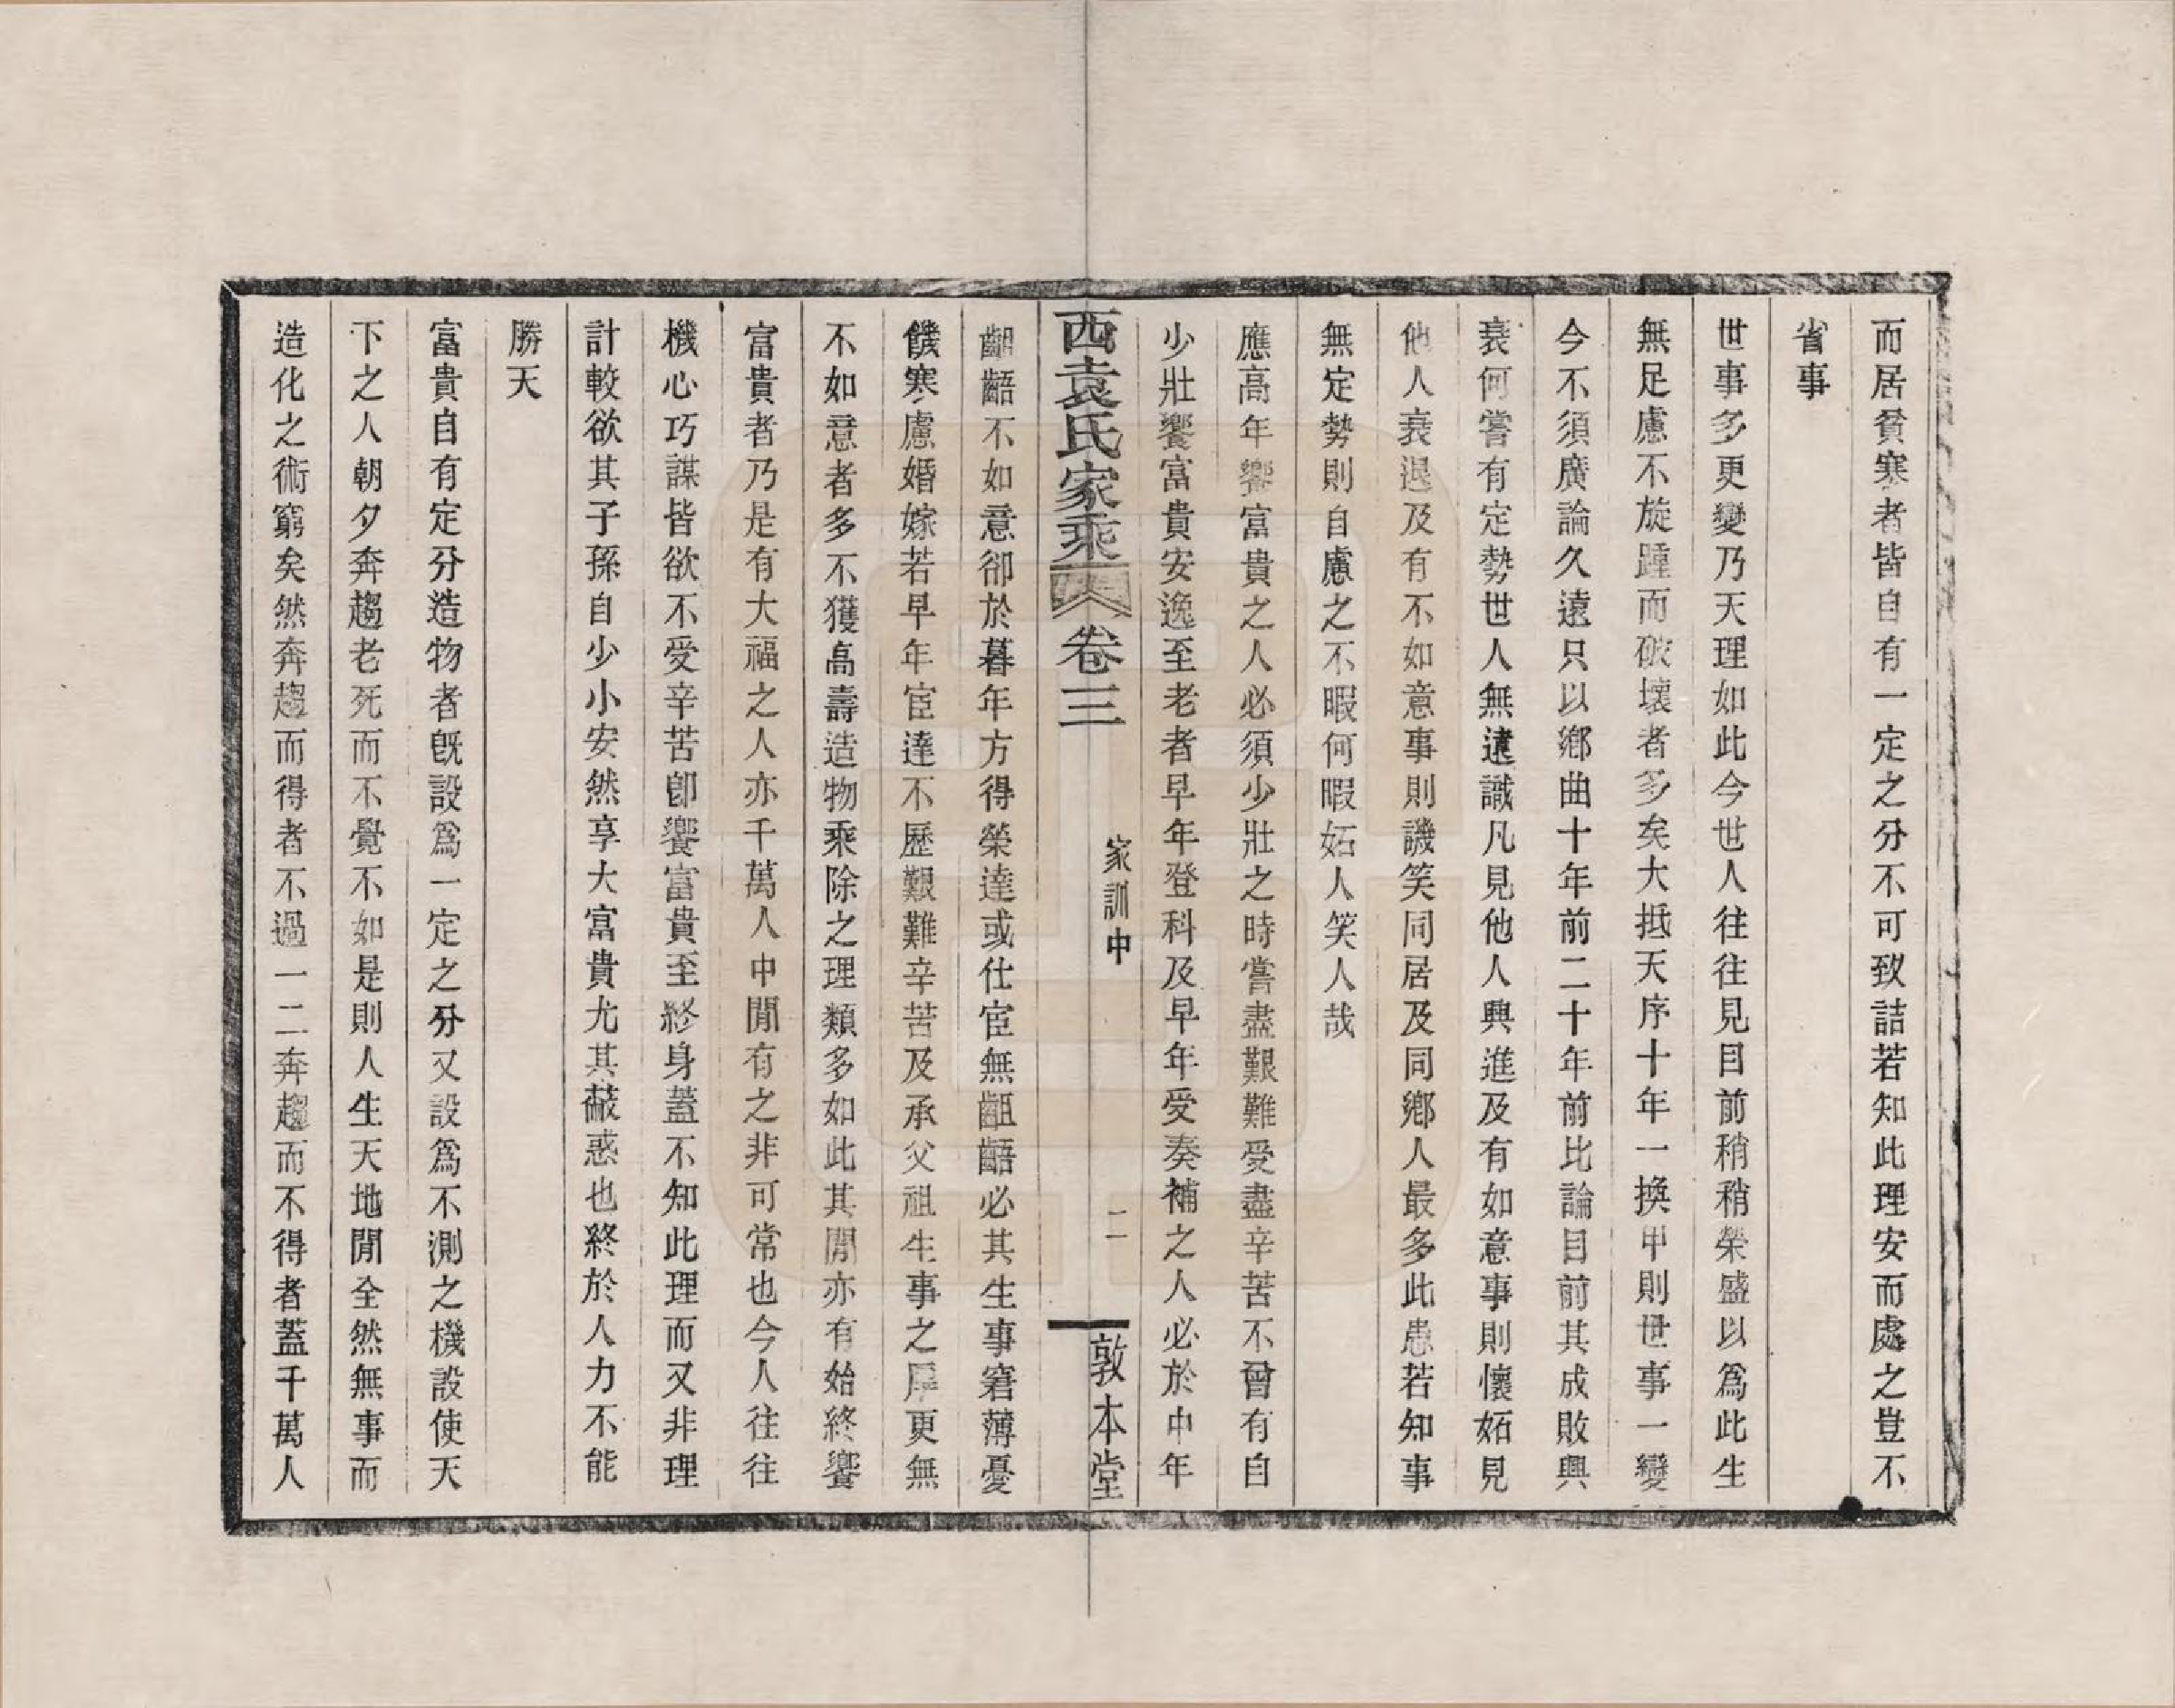 而居貧寒者皆自有一定之分不可致詰若知此理安而處之豈不
省事
世事多更變乃天理如此今世人往往見目前稍稍榮盛以爲此生
無足慮不旋踵而破壞者多矣大抵天序十年一換甲則世事一變
今不須廣論久遠只以鄕曲十年前二十年前比論目前其成敗興
衰何嘗有定勢世人無遠識凡見他人興進及有如意事則懷妬見
他人衰退及有不如意事則譏笑同居及同鄕人最多此患若知事
無定勢則自慮之不暇何暇妬人笑人哉
應高年饗富貴之人必須少壯之時嘗盡艱難受盡辛苦不曾有自
少壯饗富貴安逸至老者早年登科及早年受奏補之人必於中年
西袁氏家乘 卷三 家訓中 二 敦本堂
齟齬不如意卻於暮年方得榮達或仕宦無齟齬必其生事窘薄憂
饑寒慮婚嫁若早年宦達不歷艱難辛苦及承父祖生事之厚更無
不如意者多不獲高壽造物乘除之理類多如此其閒亦有始終饗
富貴者乃是有大福之人亦千萬人中閒有之非可常也今人往往
機心巧謀皆欲不受辛苦卽饗富貴至終身蓋不知此理而又非理
計較欲其子孫自少小安然享大富貴尤其蔽惑也終於人力不能
勝天
富貴自有定分造物者旣設爲一定之分又設爲不測之機設使天
下之人朝夕奔趨老死而不覺不如是則人生天地閒全然無事而
造化之術窮矣然奔趨而得者不過一二奔趨而不得者蓋千萬人